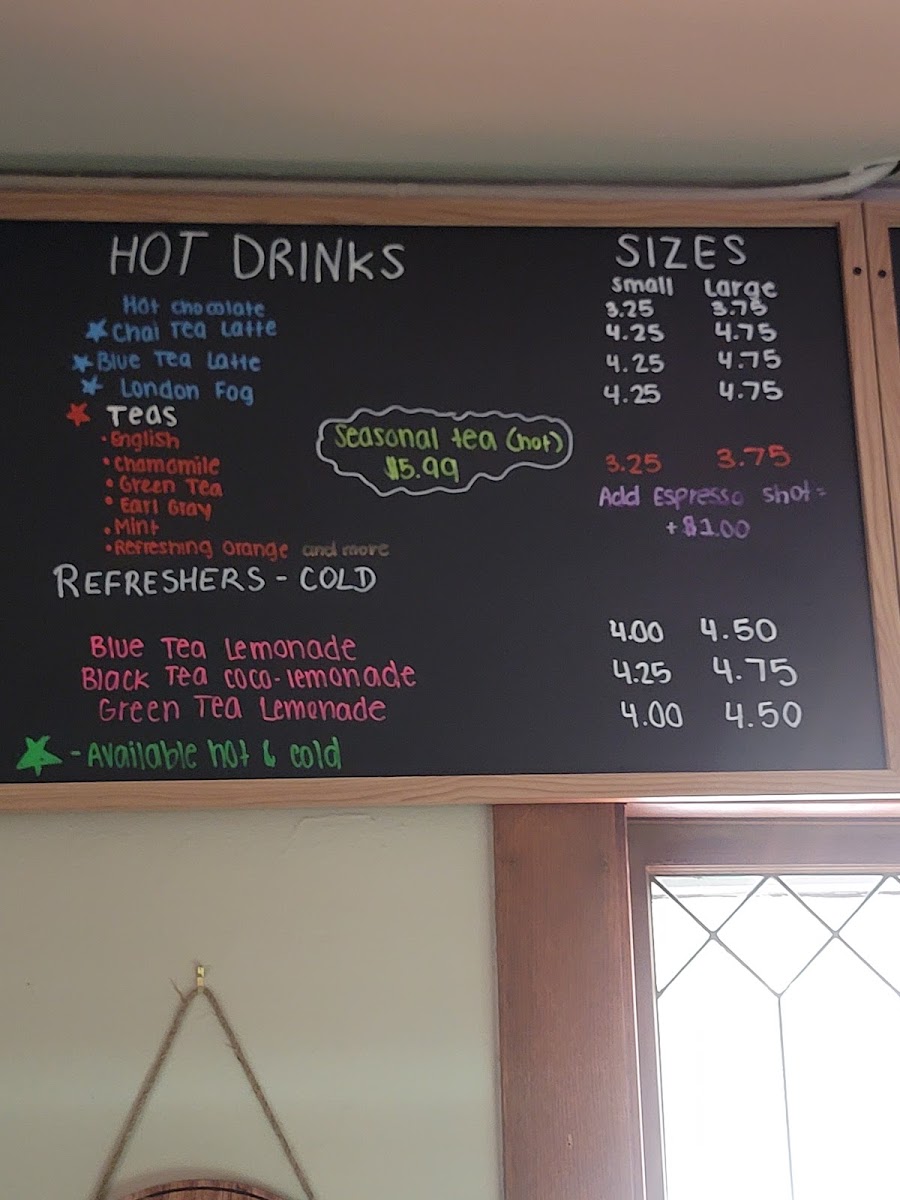 HOT DRINKS SIZES
small Large
Hot chocolate 3.25 3.75
Chai Tea Latte 4.25 4.75
Blue Tea Latte 4.25 4.75
London Fog 4.25 4.75
Teas
• English
• Chamomile 3.25 3.75
• Green Tea
• Earl Gray
• Mint
• Refreshing orange and more
Seasonal tea (hot)
$5.99
Add Espresso shot =
+ $1.00
REFRESHERS - COLD
Blue Tea Lemonade 4.00 4.50
Black Tea coco-lemonade 4.25 4.75
Green Tea Lemonade 4.00 4.50
- Available hot & cold